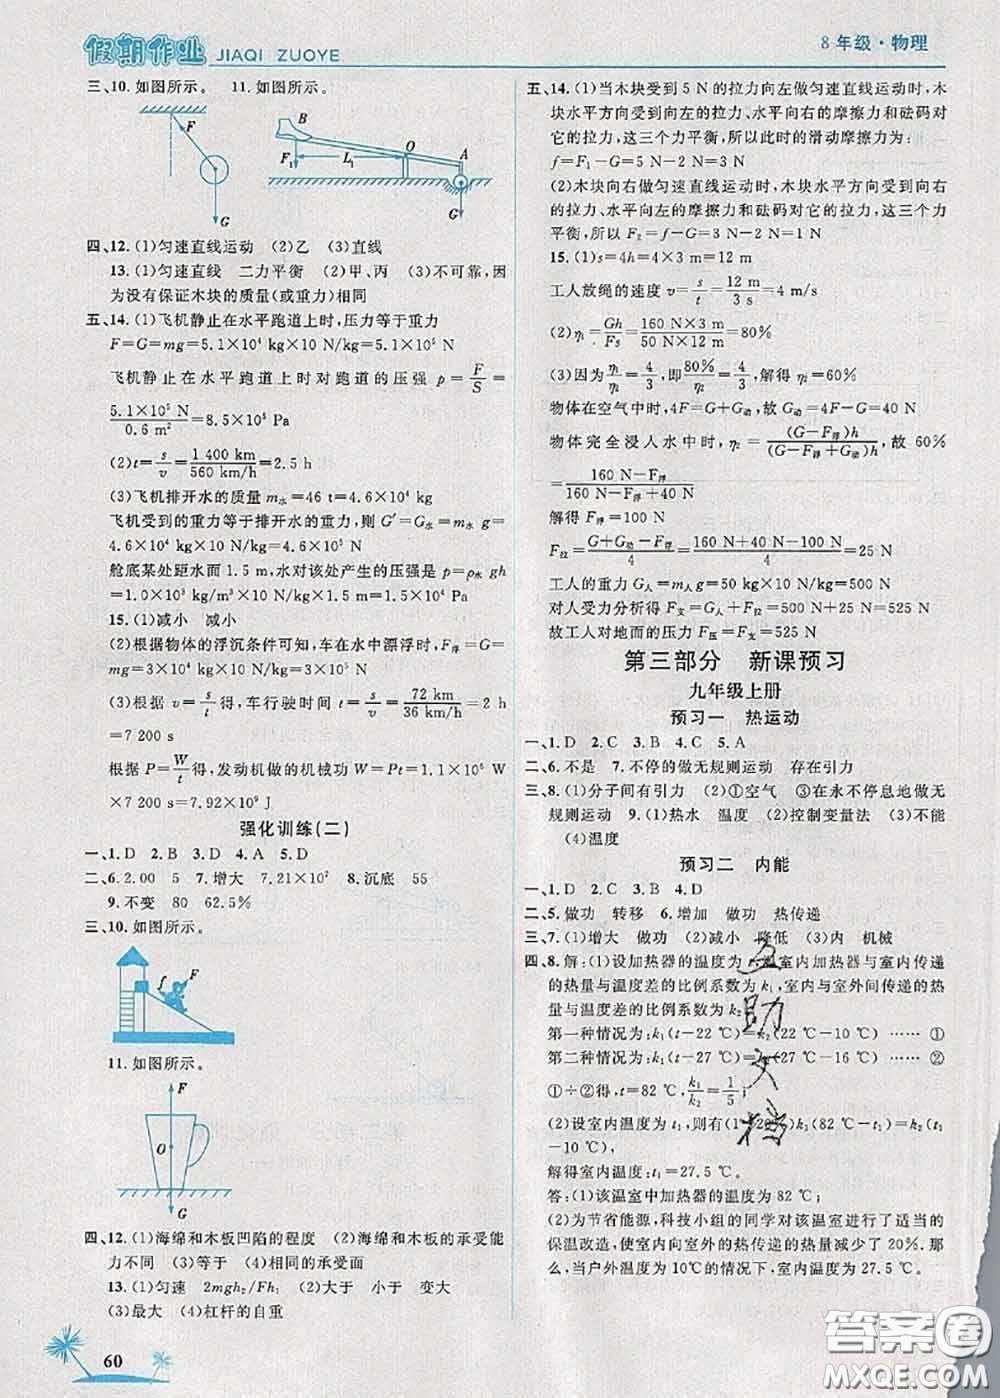 假期作业 JIAQI ZUOYE
8年级·物理
三、10.如图所示。 11.如图所示。
F
G
B
O
A
F₁
L₁
G
四、12.(1)匀速直线运动 (2)乙 (3)直线
13.(1)匀速直线 二力平衡 (2)甲、丙 (3)不可靠,因
为没有保证木块的质量(或重力)相同
五、14.(1)飞机静止在水平跑道上时,压力等于重力
F=G=mg=5.1×10⁴ kg×10 N/kg=5.1×10⁵ N
飞机静止在水平跑道上时对跑道的压强 p=F/S=
5.1×10⁵ N/0.6 m²=8.5×10⁵ Pa
(2)t=s/v=1 400 km/560 km/h=2.5 h
(3)飞机排开水的质量 m水=46 t=4.6×10⁴ kg
飞机受到的重力等于排开水的重力,则 G′=G水=m水 g=
4.6×10⁴ kg×10 N/kg=4.6×10⁵ N
舱底某处距水面 1.5 m,水对该处产生的压强 p=ρ水 gh
=1.0×10³ kg/m³×10 N/kg×1.5 m=1.5×10⁴ Pa
15.(1)减小 减小
(2)根据物体的浮沉条件可知,车在水中漂浮时,F浮=G=
mg=3×10³ kg×10 N/kg=3×10⁴ N
(3)根据 v=s/t得,车行驶的时间 t=s/v=72 km/36 km/h=2 h
=7 200 s
根据 P=W/t得,发动机做的机械功 W=Pt=1.1×10⁶ W
×7 200 s=7.92×10⁹ J
强化训练(二)
一、1.D 2.B 3.D 4.A 5.D
二、6.2.00 5 7.增大 7.21×10⁷ 8.沉底 55
9.不变 80 62.5%
三、10.如图所示。
f
F
11.如图所示。
F
O
G
四、12.(1)海绵和木板凹陷的程度 (2)海绵和木板的承受能
力不同 (3)等于 (4)相同的承受面
13.(1)匀速 2mgh₂/Fh₁ (2)大于 小于 变大
(3)最大 (4)杠杆的自重
60
五、14.(1)当木块受到 5 N的拉力向左做匀速直线运动时,木
块水平方向受到向左的拉力、水平向右的摩擦力和砝码对
它的拉力,这三个力平衡,所以此时的滑动摩擦力为:
f=F₁-G=5 N-2 N=3 N
(2)木块向右做匀速直线运动时,木块水平方向受到向右
的拉力、水平向左的摩擦力和砝码对它的拉力,这三个力
平衡,所以 F₂=f-G=3 N-2 N=1 N
15.(1)s=4h=4×3 m=12 m
工人放绳的速度 v=s/t=12 m/3 s=4 m/s
(2)η₁=Gh/Fs=160 N×3 m/50 N×12 m=80%
(3)因为η₁/η₂=4/3,即80%/η₂=4/3,解得 η₂=60%
物体在空气中时,4F=G+G动,故 G动=4F-G=40 N
物体完全浸入水中时,η₂=(G-F浮)h/(G-F浮+G动)h,故 60%
=160 N-F浮/160 N-F浮+40 N
解得 F浮=100 N
F拉=G+G动-F浮/4=160 N+40 N-100 N/4=25 N
工人的重力 G人=m人g=50 kg×10 N/kg=500 N
对人受力分析得 F支=G人+F拉=500 N+25 N=525 N
故工人对地面的压力 F压=F支=525 N
第三部分 新课预习
九年级上册
预习一 热运动
一、1.D 2.C 3.B 4.C 5.A
二、6.不是 7.不停的做无规则运动 存在引力
三、8.(1)分子间有引力 (2)①空气 ③在永不停息地做无
规则运动 9.(1)热水 温度 (2)控制变量法 (3)不能
(4)温度
预习二 内能
一、1.D 2.C 3.B 4.D
二、5.做功 转移 6.增加 做功 热传递
三、7.(1)增大 做功 (2)减小 降低 (3)内 机械
四、8.解:(1)设加热器的温度为 室内加热器与室内传递
的热量与温度差的比例系数为 k₁,室内与室外间传递的热
量与温度差的比例系数为 k₂
第一种情况为:k₁(t-22 ℃)=k₂(22 ℃-10 ℃) …… ①
第二种情况为:k₁(t-27 ℃)= (27 ℃-16 ℃) …… ②
①÷②得,t=82 ℃,k₁/k₂=1/5;
(2)设室内温度为 t₁,则有(1-20%)k₁(82 ℃-t₁)=k₂(t₁
-10 ℃),
解得室内温度:t₁=27.5 ℃。
答:(1)该温室中加热器的温度为 82 ℃;
(2)为节省能源,科技小组的同学对该温室进行了适当的
保温改造,使室内向室外的热传递的热量减少了 20%.那
么,当户外温度为 10℃的情况下,室内温度为 27.5 ℃。
互助文档
答案圈
MXQE.COM